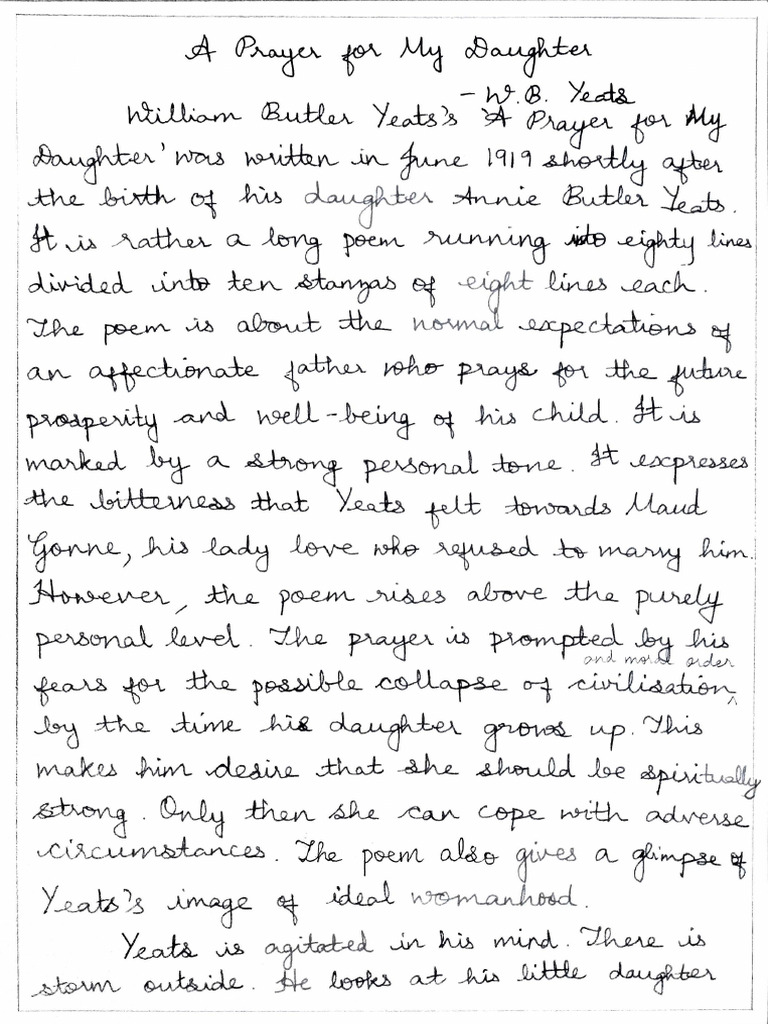 A Prayer for My Daughter
- W. B. Yeats
William Butler Yeats's 'A Prayer for My
Daughter' was written in June 1919 shortly after
the birth of his daughter Annie Butler Yeats.
It is rather a long poem running into eighty lines
divided into ten stanzas of eight lines each.
The poem is about the normal expectations of
an affectionate father who prays for the future
prosperity and well-being of his child. It is
marked by a strong personal tone. It expresses
the bitterness that Yeats felt towards Maud
Gonne, his lady love who refused to marry him.
However, the poem rises above the purely
personal level. The prayer is prompted by his
and moral order
fears for the possible collapse of civilisation,
by the time his daughter grows up. This
makes him desire that she should be spiritually
strong. Only then she can cope with adverse
circumstances. The poem also gives a glimpse of
Yeats's image of ideal womanhood.
Yeats is agitated in his mind. There is
storm outside. He looks at his little daughter